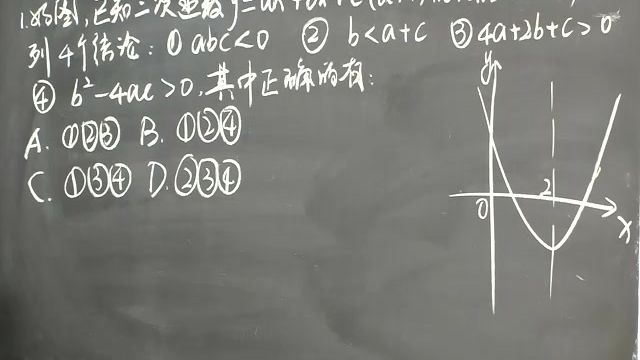 1.如图,已知二次函数y=ax²+bx+c
列4个结论:① abc<0 ② b<a+c ③ 4a+2b+c>0
④ b²-4ac>0,其中正确的有:
A. ①②③ B. ①②④
C. ①③④ D. ②③④
y
0
2
x